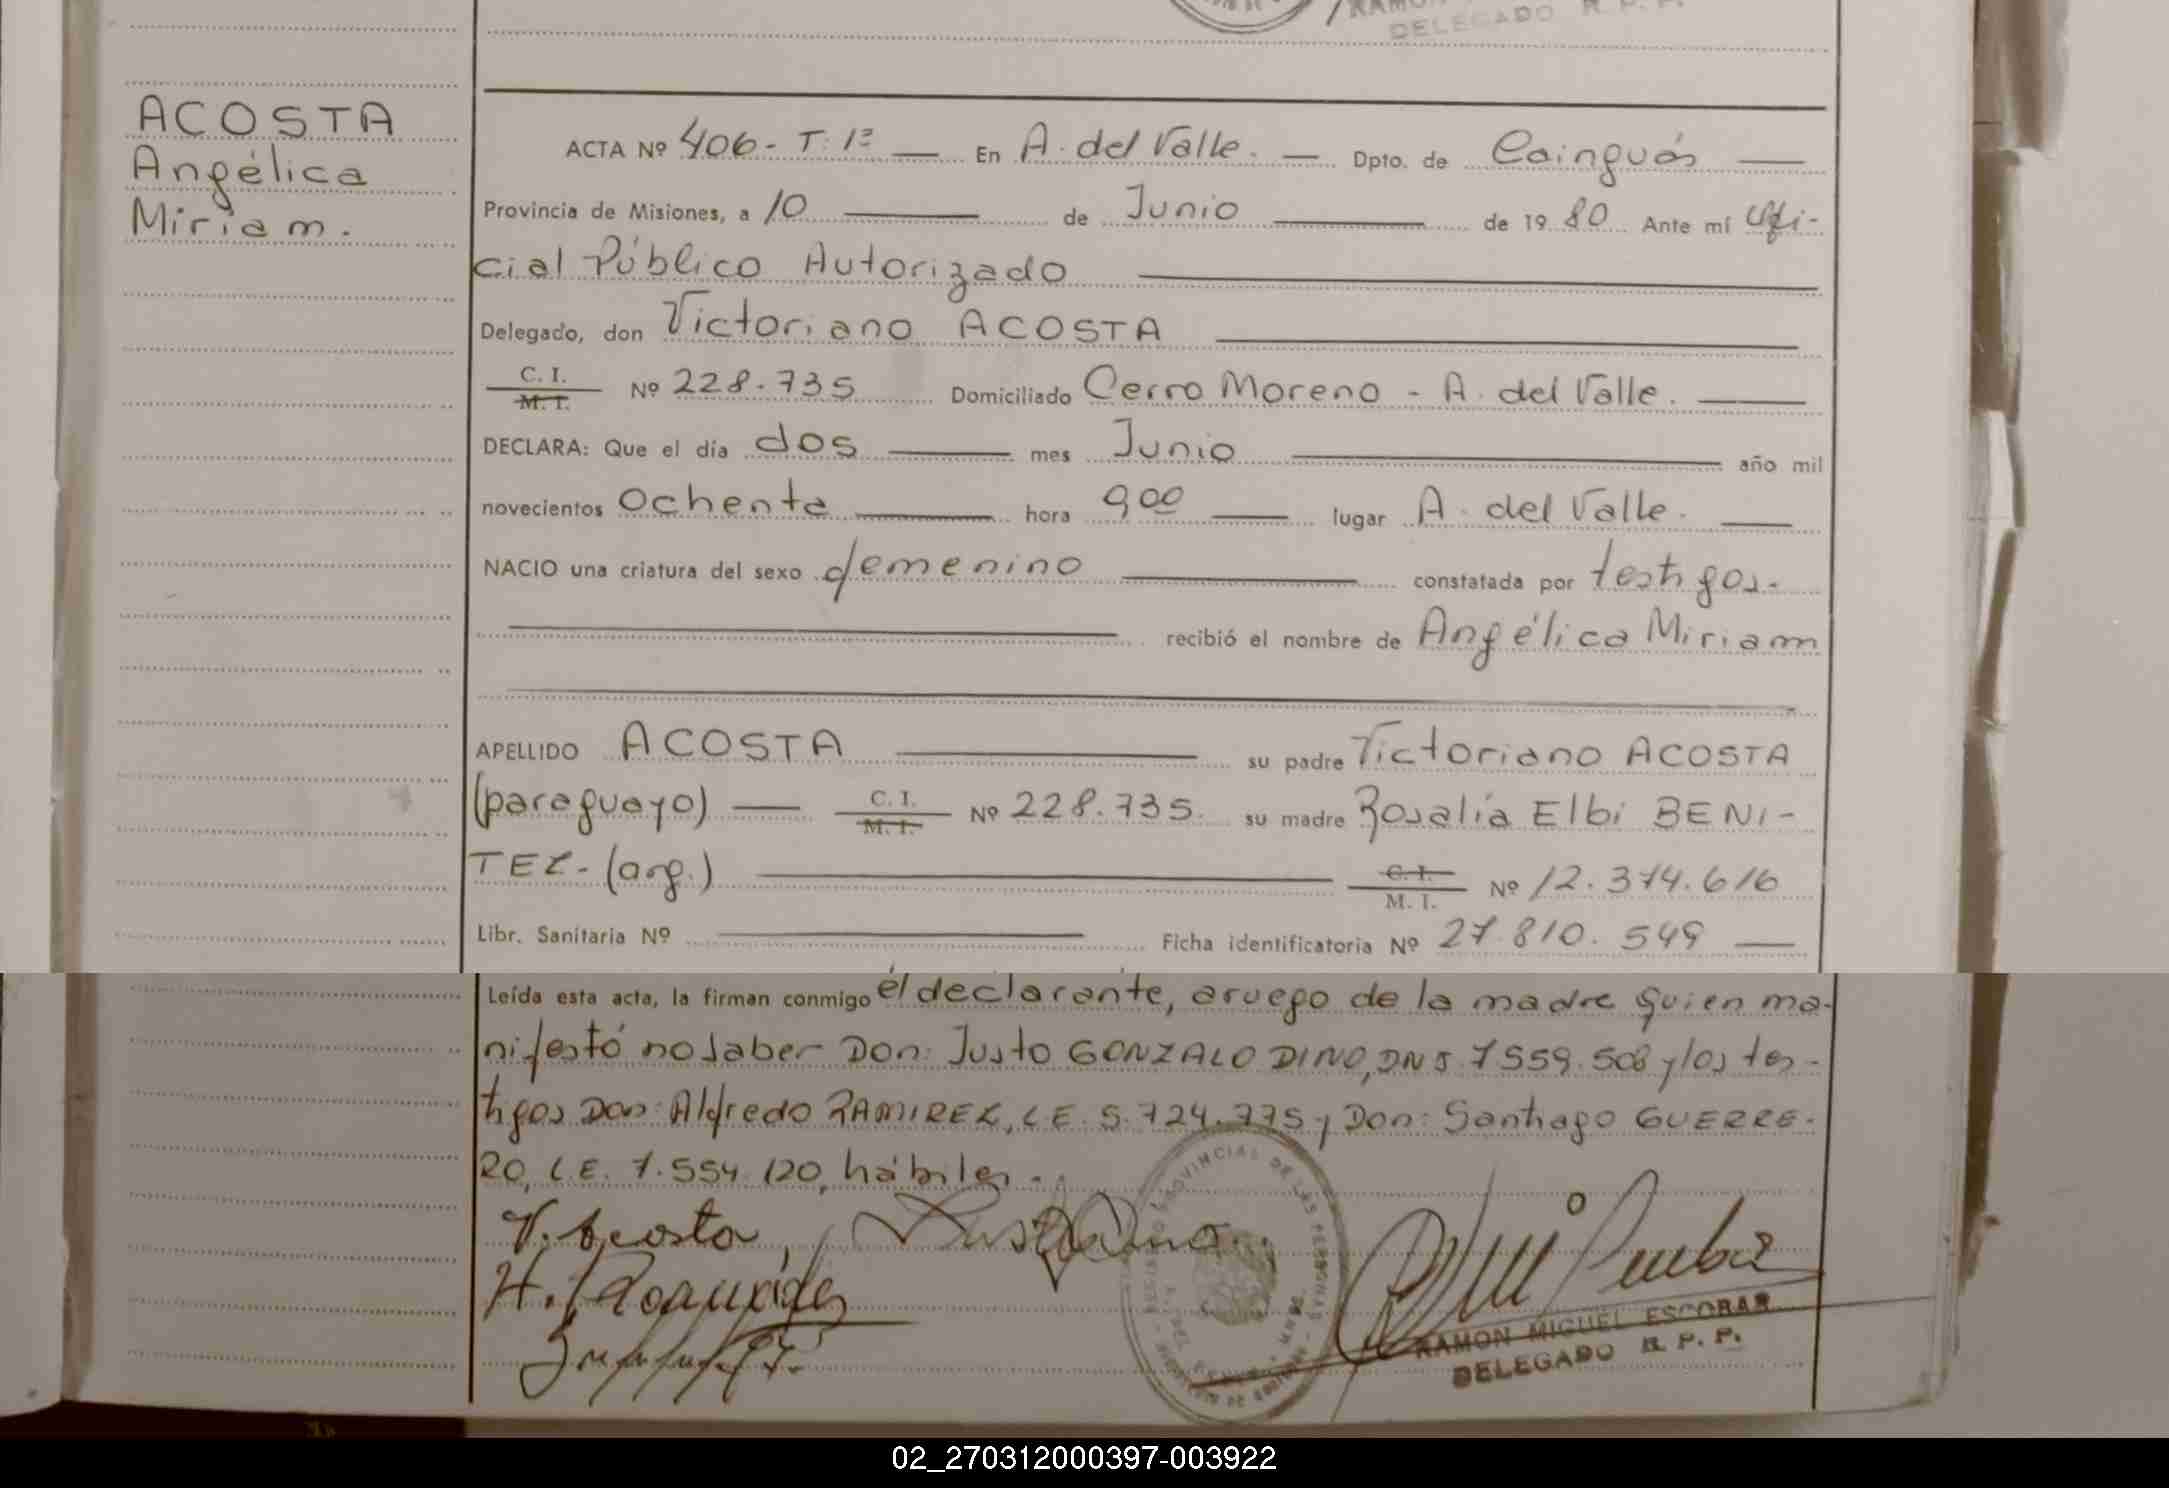 DELEGADO R. P. P.
ACOSTA
Angélica
Miriam.
ACTA Nº 406 - T. 1º — En A. del Valle. — Dpto. de Cainguás —
Provincia de Misiones, a 10 — de Junio — de 1980 Ante mí Ofi-
cial Público Autorizado
Delegado, don Victoriano ACOSTA
C. I. / M. I. Nº 228.735 Domiciliado Cerro Moreno - A. del Valle. —
DECLARA: Que el día dos — mes Junio — año mil
novecientos ochenta — hora 9 00 — lugar A. del Valle. —
NACIO una criatura del sexo femenino — constatada por testigos.-
recibió el nombre de Angélica Miriam
APELLIDO ACOSTA — su padre Victoriano ACOSTA
(paraguayo) — C. I. / M. I. Nº 228.735. su madre Rosalía Elbi BENI-
TEZ - (arg.) — C. I. / M. I. Nº 12.374.616
Libr. Sanitaria Nº — Ficha identificatoria Nº 27.810.549 —
Leída esta acta, la firman conmigo el declarante, a ruego de la madre quien ma-
nifestó no saber Don: Justo GONZALO DINO, DNI. 7559.508 y los tes-
tigos Don: Alfredo RAMIREZ, L.E. 5.724.775 y Don: Santiago GUERRE-
RO, L.E. 7.554.120, hábiles.-
V. Acosta
RAMON MIGUEL ESCOBAR
DELEGADO R. P. P.
02_270312000397-003922